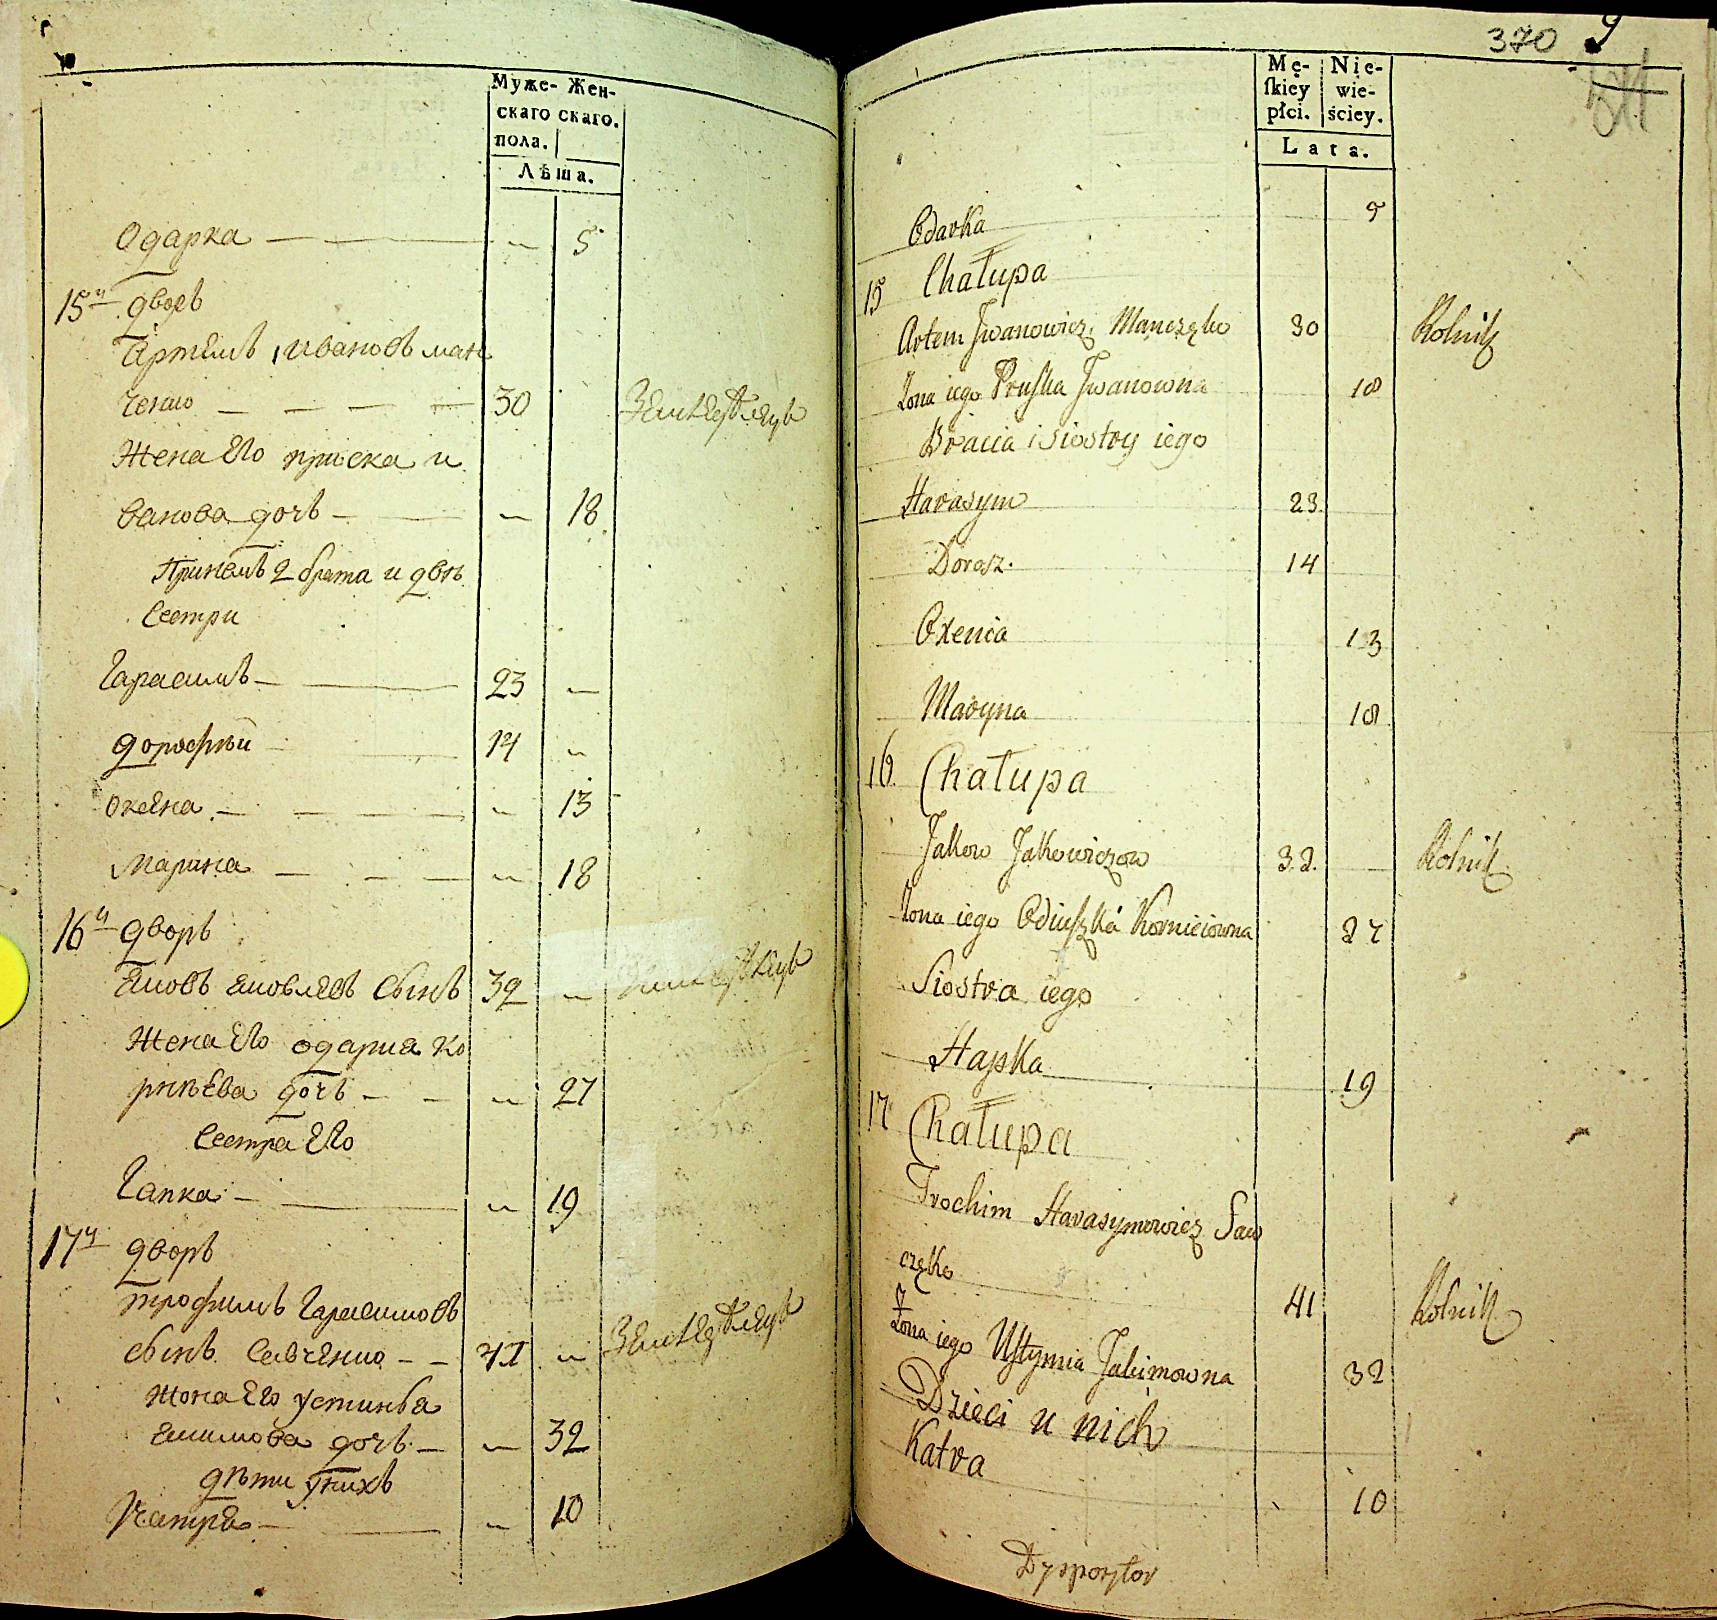 Муже- Жен-
скаго скаго.
пола.
Лѣта.
Одарка — — — " 5
15й дворъ
Артемъ Ивановъ Ман
ченко — — — — 30 Земледѣлецъ
Жена Его приска и
ванова дочь — — " 18
Принемъ 2 брата и двѣ
Сестри
Гарасимъ — — 23 "
дорофѣй — — 14 "
оксена — — — — " 13
Марина — — — " 18
16й дворъ
Яковъ яковлевъ сынъ 32 " Земледѣлецъ
Жена Его одарка ко
рнѣева дочь — — " 27
Сестра Его
Гапка — — " 19
17й дворъ
трофимъ Гарасимовъ
сынъ Савченко — — 41 " Земледѣлецъ
Жона Его устинья
якимова дочь — " 32
дѣти у нихъ
Катря — — " 10
370 9
Mę- Nie-
skiey wie-
płci. ściey.
Lata.
Odarka 5
15 Chałupa
Artem Jwanowicz Manczęko 30 Rolnik
Żona iego Pruska Jwanowna 18
Bracia i Siostry iego
Harasym 23
Dorosz. 14
Oxenia 13
Maryna 18
16 Chałupa
Jakow Jakowiczow 32. Rolnik
Żona iego Korneiowna 27
Siostra iego
Hapka 19
17 Chałupa
Trochim Harasymowicz Saw
częko 41 Rolnik
Żona iego Ustymia Jakimowna 32
Dzieci u nich
Katra 10